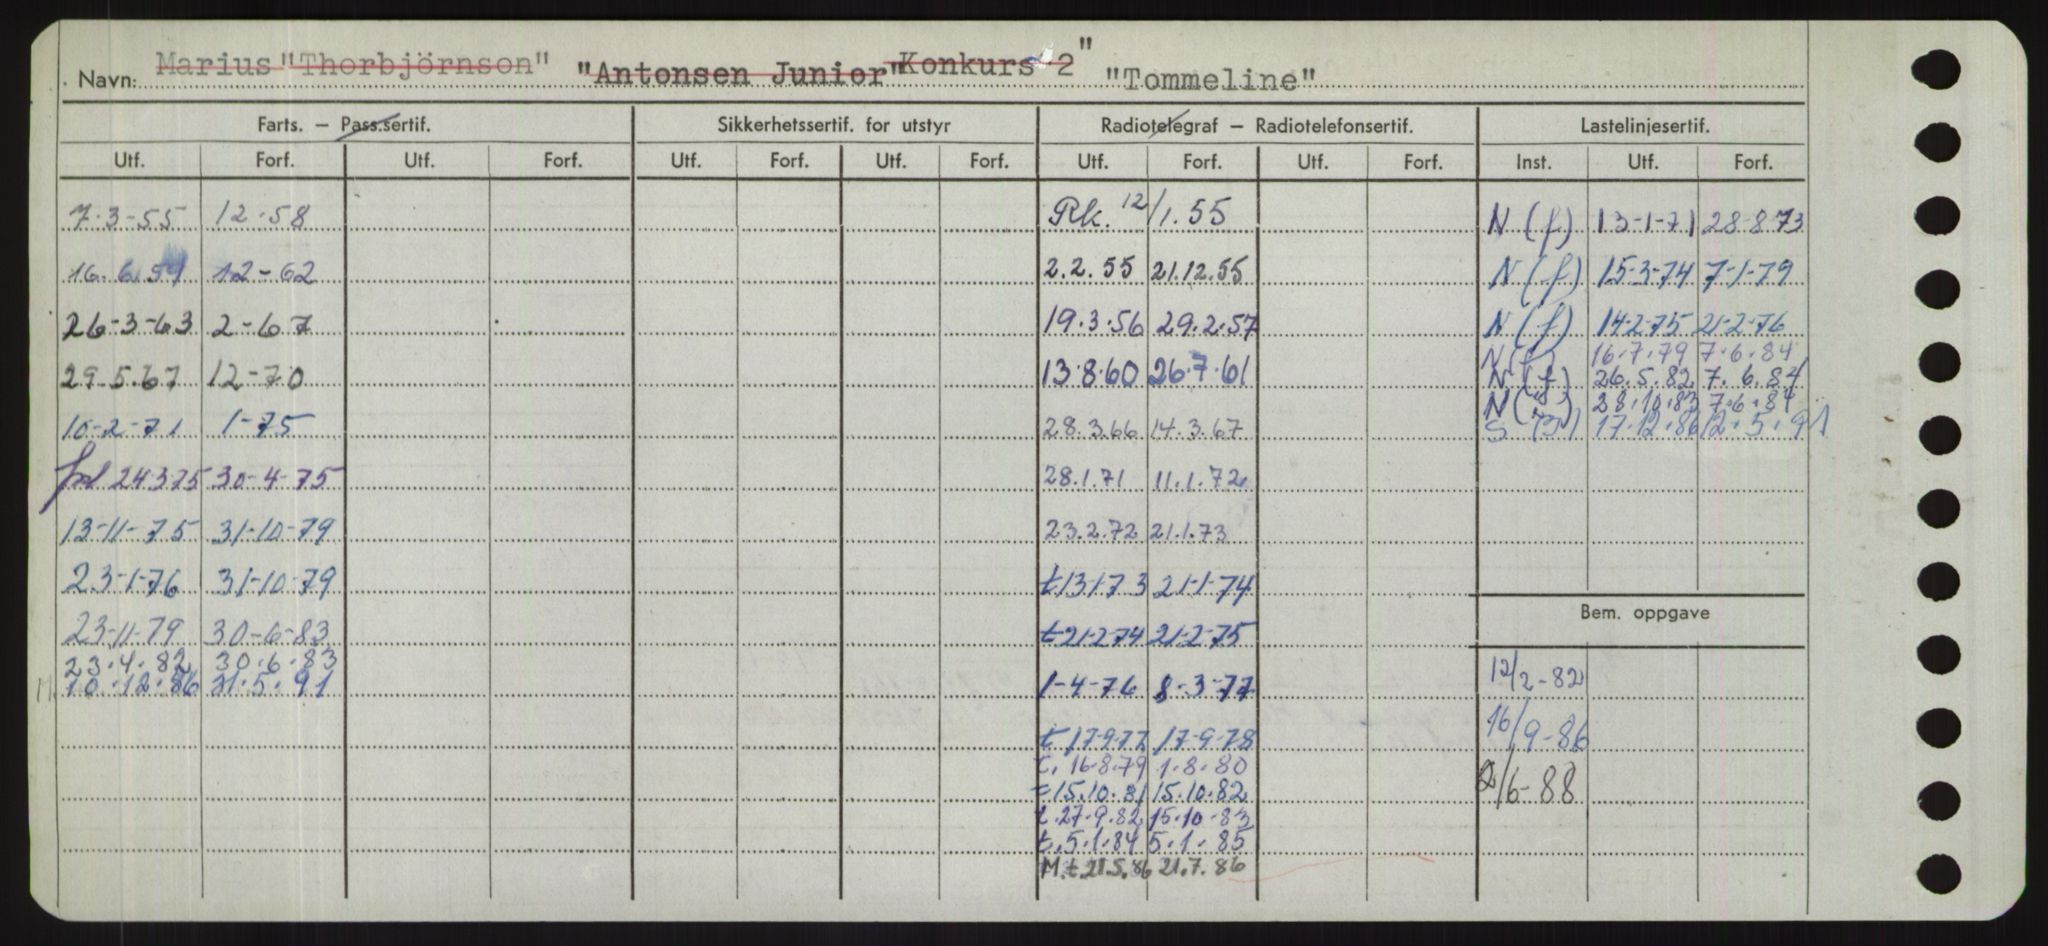 Navn: Marius "Thorbjörnson" "Antonsen Junior" Konkurs 2" "Tommeline"
Farts. – Pass.sertif. Sikkerhetssertif. for utstyr Radiotelegraf – Radiotelefonsertif. Lastelinjesertif.
Utf. Forf. Utf. Forf. Utf. Forf. Utf. Forf. Utf. Forf. Utf. Forf. Inst. Utf. Forf.
7-3-55 12-58 Rk. 12/1.55 N(f) 13-1-71 28-8-73
16.6.59 12-62 2.2.55 21.12.55 N(f) 15-3-74 7-1-79
26-3-63 2-67 19.3.56 29.2.57 N(f) 14-2-75 21-2-76
N(f) 16.7.79 7.6.84
29.5.67 12-70 13.8.60 26.7.61 N(f) 26.5.82 7.6.84
N(f) 28.10.83 7.6.84
10-2-71 1-75 28.3.66 14.3.67 S 17.12.86 12.5.91
24375 30-4-75 28.1.71 11.1.72
13-11-75 31-10-79 23.2.72 21.1.73
23-1-76 31-10-79 t13-1-73 21-1-74
Bem. oppgave
23-11-79 30-6-83 t21-2-74 21-2-75
23.4.82 30.6.83
M. 10.12.86 31.5.91 1-4-76 8-3-77 12/2-82
t 17-9-77 17-9-78 16/9-86
t. 16-8.79 1.8.80
t15.10.81 15.10.82 2/6-88
t.27.9.82 15.10.83
t.5.1.84 5.1.85
M.t.21.5.86 21.7.86